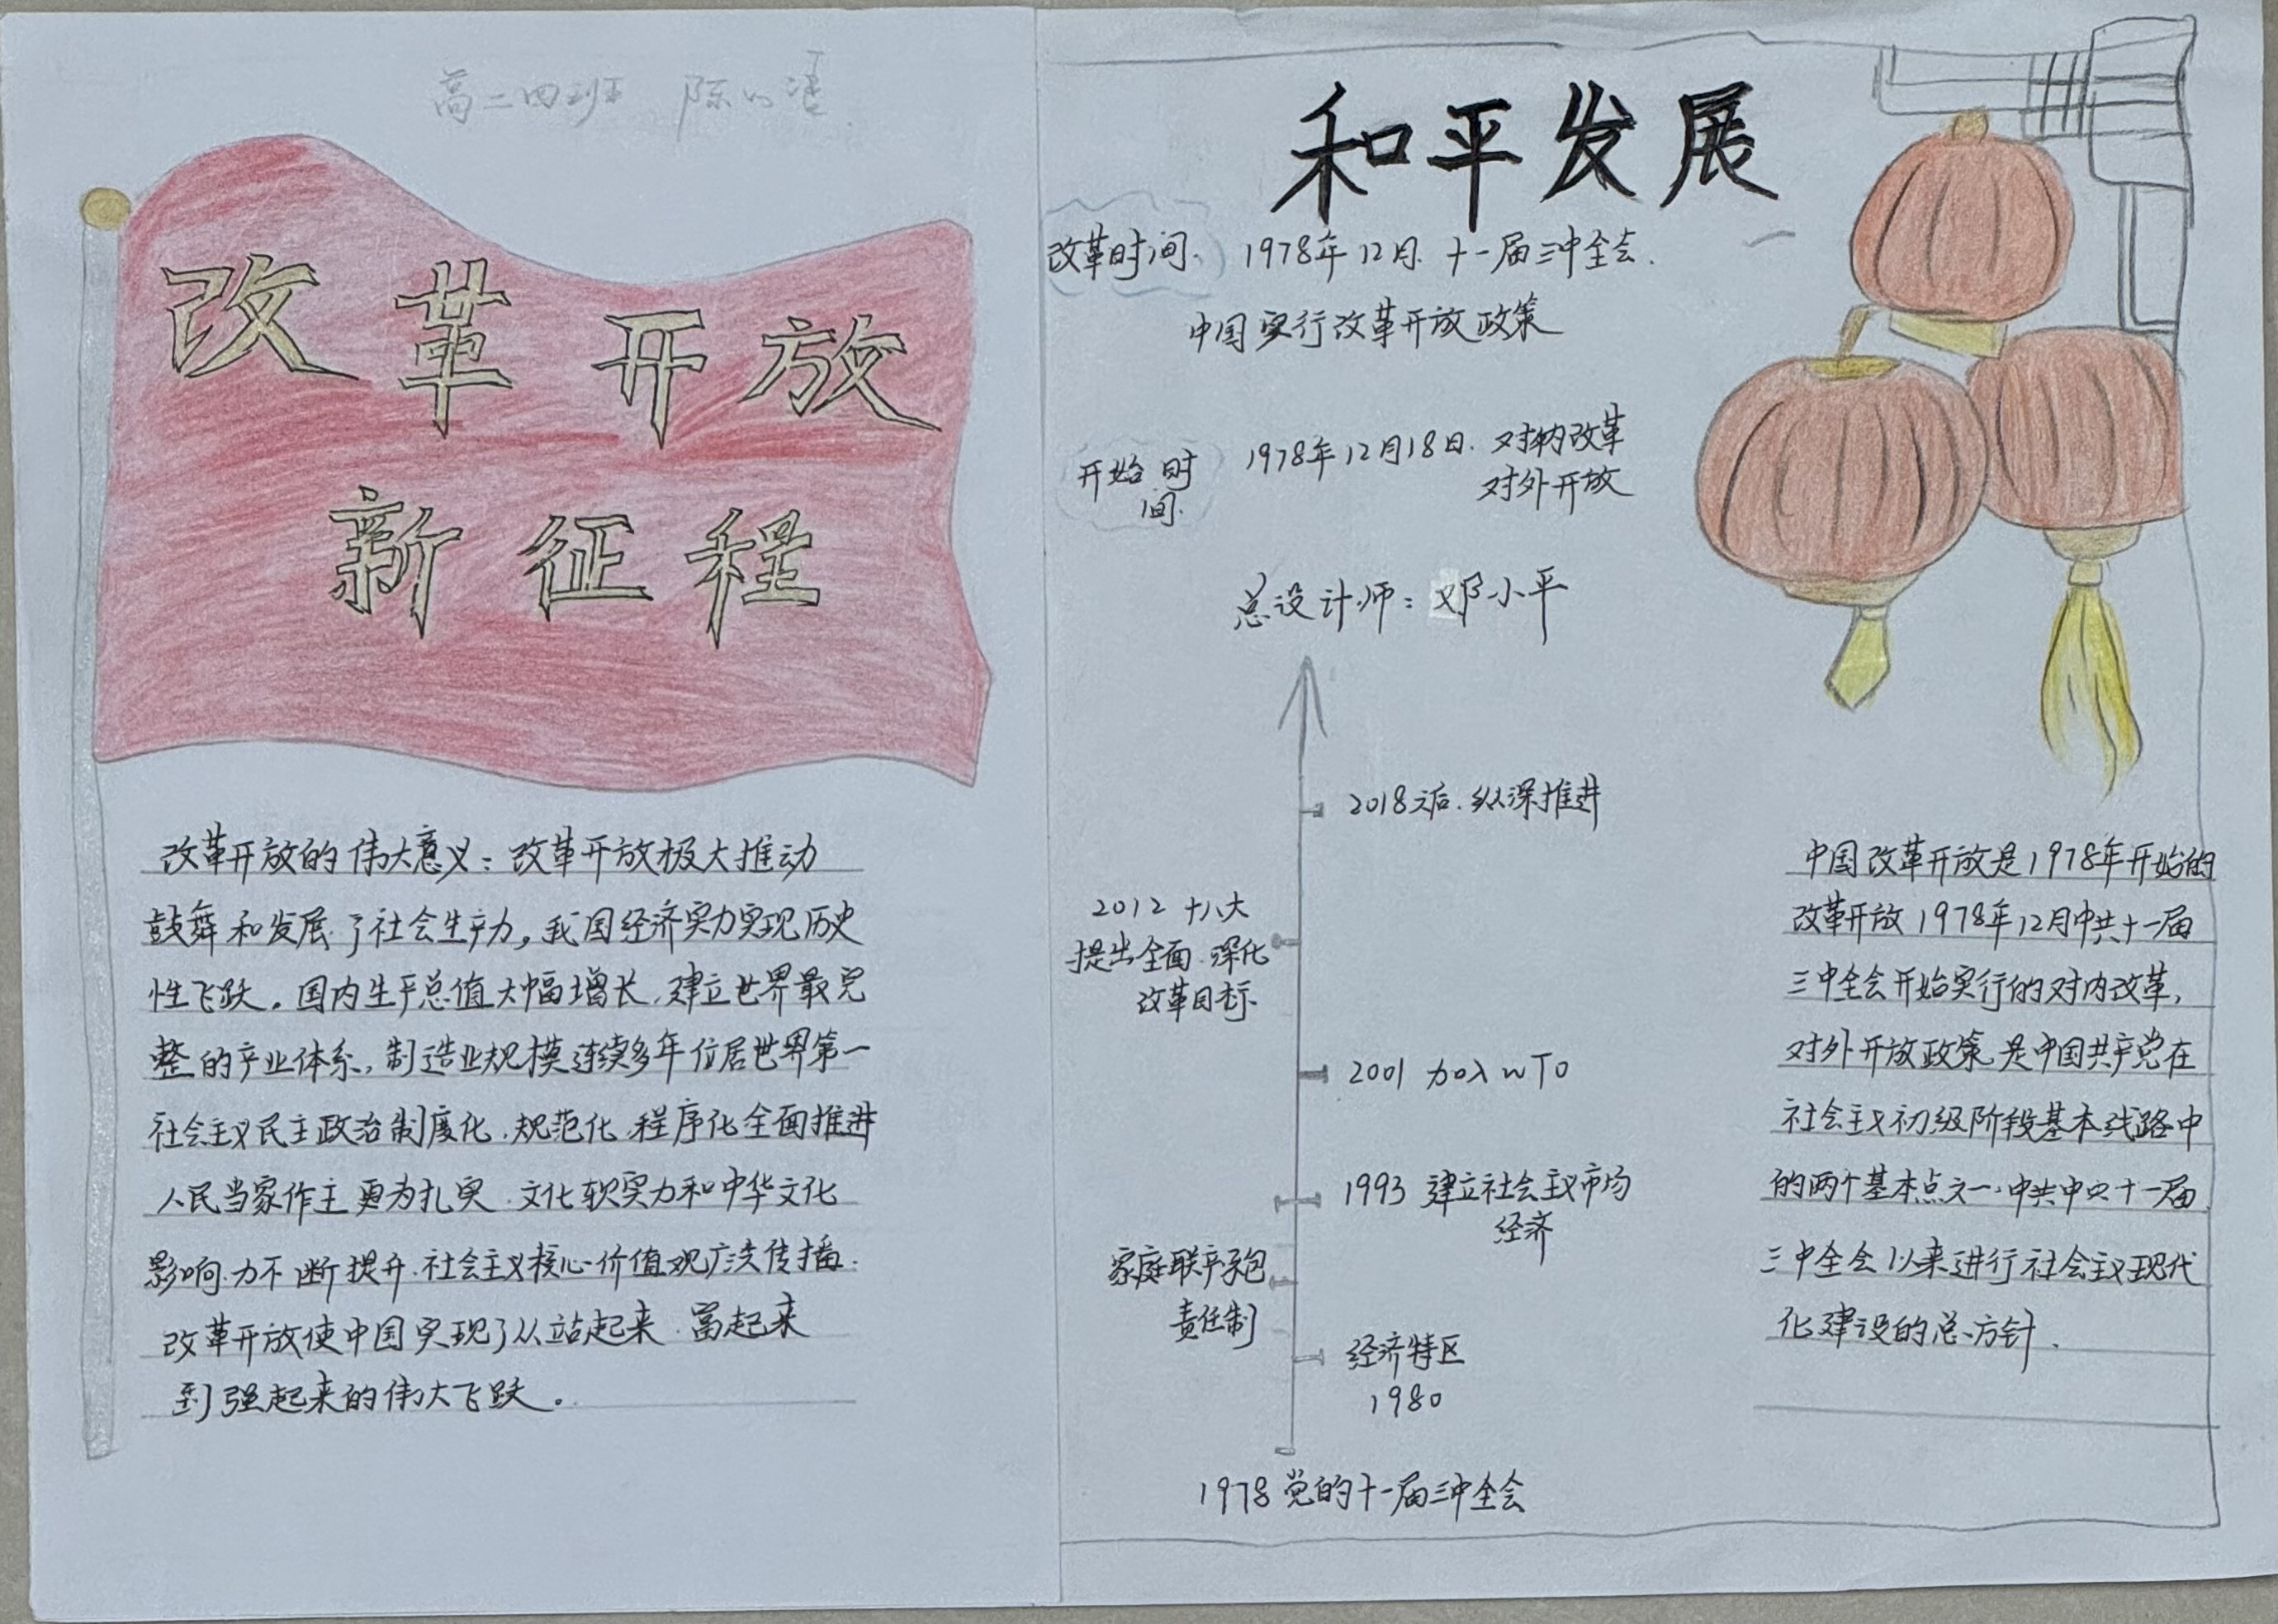 高二四班 陈
改革开放
新征程
改革开放的伟大意义：改革开放极大推动
鼓舞和发展了社会生产力，我国经济实力实现历史
性飞跃。国内生产总值大幅增长，建立世界最完
整的产业体系，制造业规模连续多年位居世界第一
社会主义民主政治制度化、规范化、程序化全面推进
人民当家作主更为扎实．文化软实力和中华文化
影响力不断提升．社会主义核心价值观广泛传播．
改革开放使中国实现了从站起来．富起来
到强起来的伟大飞跃。
和平发展
改革时间． 1978年12月．十一届三中全会．
中国实行改革开放政策
开始时间． 1978年12月18日．对内改革
对外开放
总设计师：邓小平
2018之后．纵深推进
2012 十八大
提出全面深化
改革目标．
2001 加入WTO
1993 建立社会主义市场
经济
家庭联产承包
责任制
经济特区
1980
1978党的十一届三中全会
中国改革开放是1978年开始的
改革开放1978年12月中共十一届
三中全会开始实行的对内改革，
对外开放政策是中国共产党在
社会主义初级阶段基本线路中
的两个基本点之一，中共中央十一届
三中全会以来进行社会主义现代
化建设的总方针．